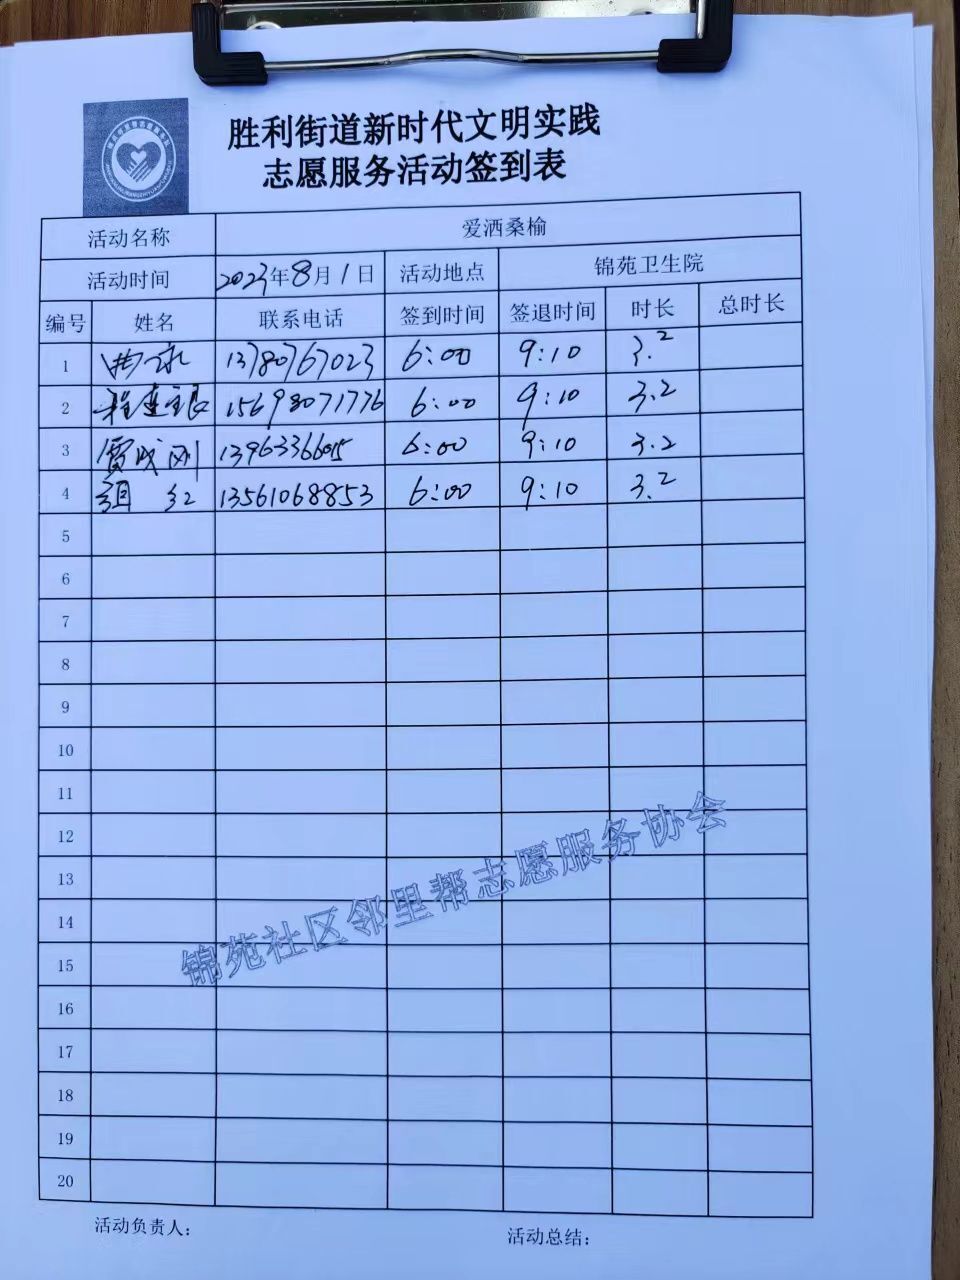 胜利街道新时代文明实践
志愿服务活动签到表
活动名称 爱洒桑榆
活动时间 2023年8月1日 活动地点 锦苑卫生院
编号 姓名 联系电话 签到时间 签退时间 时长 总时长
1 13780767023 6:00 9:10 3.2
2 程连银 15698071776 6:00 9:10 3.2
3 贾成刚 13963366015 6:00 9:10 3.2
4 红 13561068853 6:00 9:10 3.2
5
6
7
8
9
10
11
12
13
14
15
16
17
18
19
20
锦苑社区邻里帮志愿服务协会
活动负责人： 活动总结：